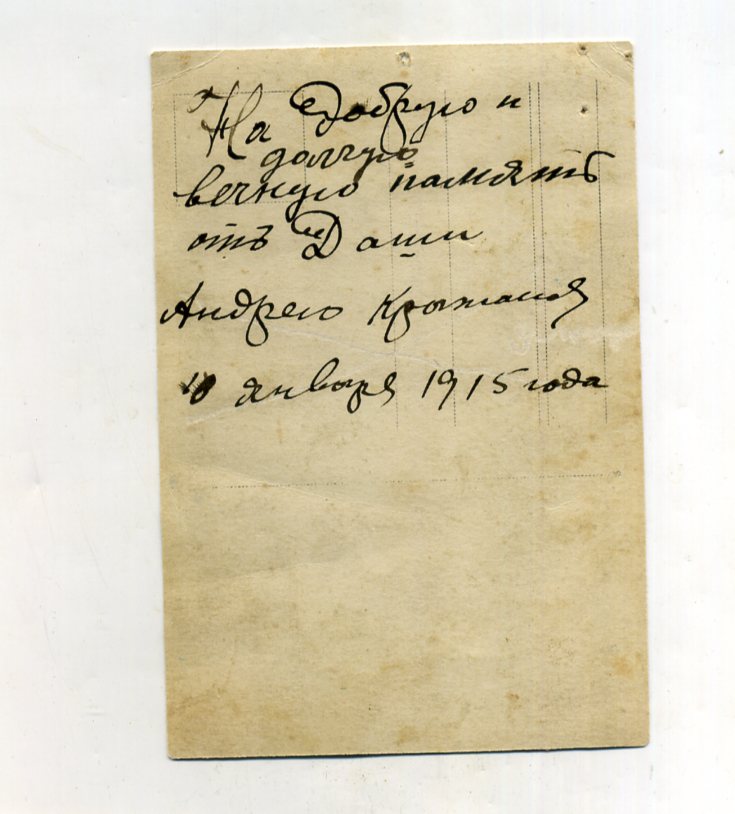 На добрую и
долгую
вечную память
отъ Даши
Андрею
10 января 1915 года